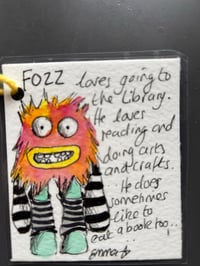 FOZZ loves going to
the Library.
He loves
reading and
doing arts
and crafts.
He does
sometimes
like to
eat a book too...
Emma